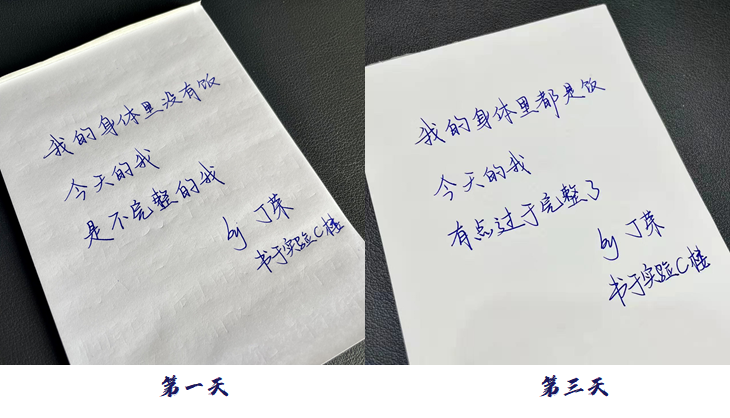 我的身体里没有饭
今天的我
是不完整的我
by 丁荣
书于实验C楼
第一天
我的身体里都是饭
今天的我
有点过于完整了
by 丁荣
书于实验C楼
第三天